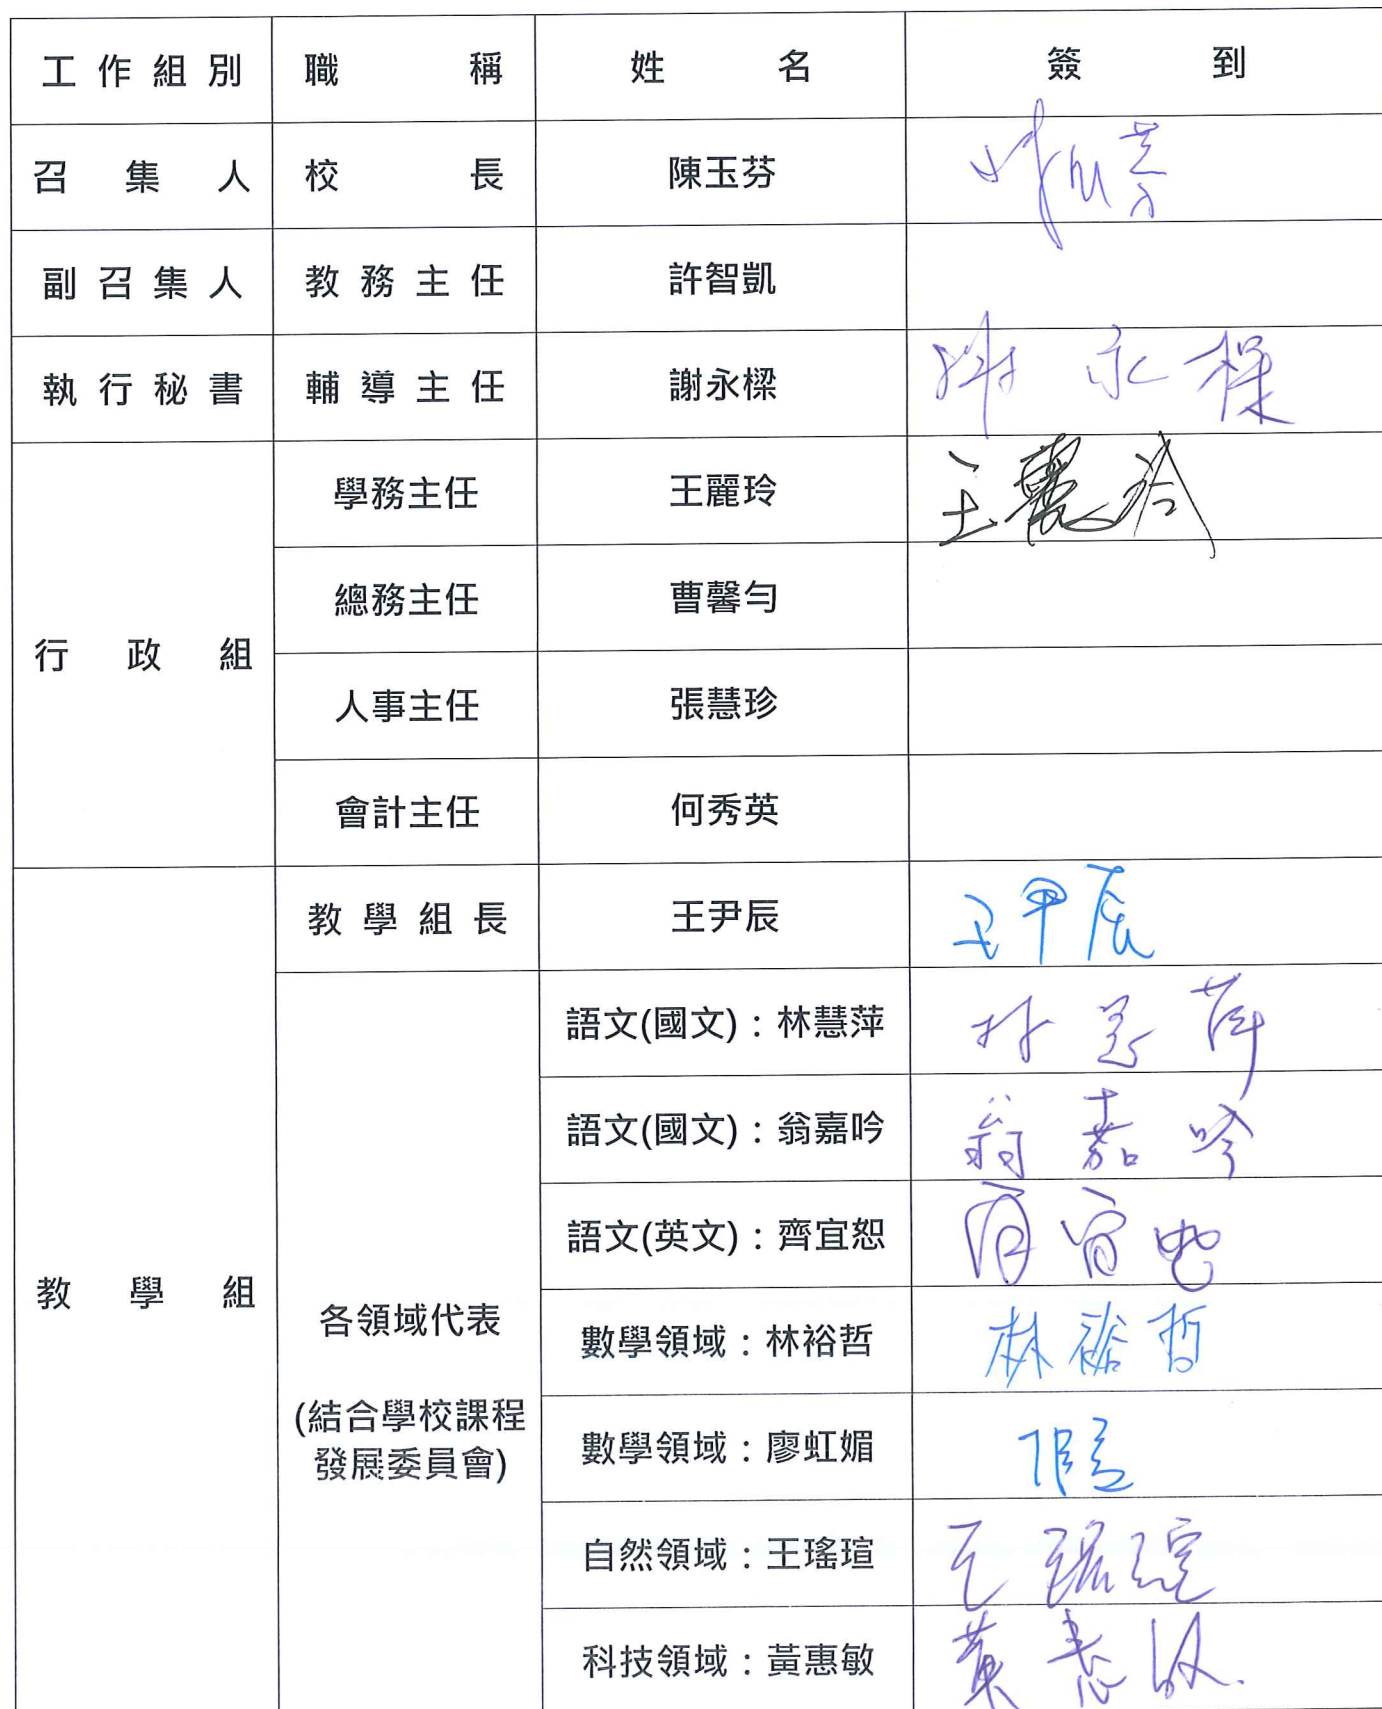 工作組別 職稱 姓名 簽到
召集人 校長 陳玉芬 陳玉芬
副召集人 教務主任 許智凱
執行秘書 輔導主任 謝永樑 謝永樑
行政組
學務主任 王麗玲 王麗玲
總務主任 曹馨勻
人事主任 張慧珍
會計主任 何秀英
教學組
教學組長 王尹辰 王尹辰
各領域代表
(結合學校課程
發展委員會)
語文(國文)：林慧萍 林慧萍
語文(國文)：翁嘉吟 翁嘉吟
語文(英文)：齊宜恕 齊宜恕
數學領域：林裕哲 林裕哲
數學領域：廖虹媚
自然領域：王瑤瑄 王瑤瑄
科技領域：黃惠敏 黃惠敏